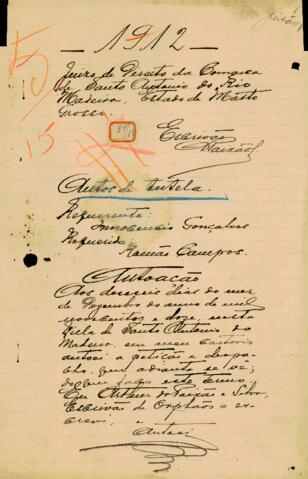 — 1912 —
Juizo de Direito da Comarca
de Santo Antonio do Rio
Madeira, Estado de Matto
Grosso.
15
Escrivão
Paixão
Autos de tutela.
Requerente:
Innocencio Gonçalves
Requerido
Ramão Campos.
Autoação
Aos dezeseis dias do mez
de Dezembro do anno de mil
novecentos e doze, nesta
villa de Santo Antonio do
Madeira, em meu cartorio
autoei a petição e despa-
cho, que adiante se vê;
do que faço este termo.
Eu Arthur da Paixão e Silva,
Escrivão de Orphãos o es-
crevi, e
Autoei